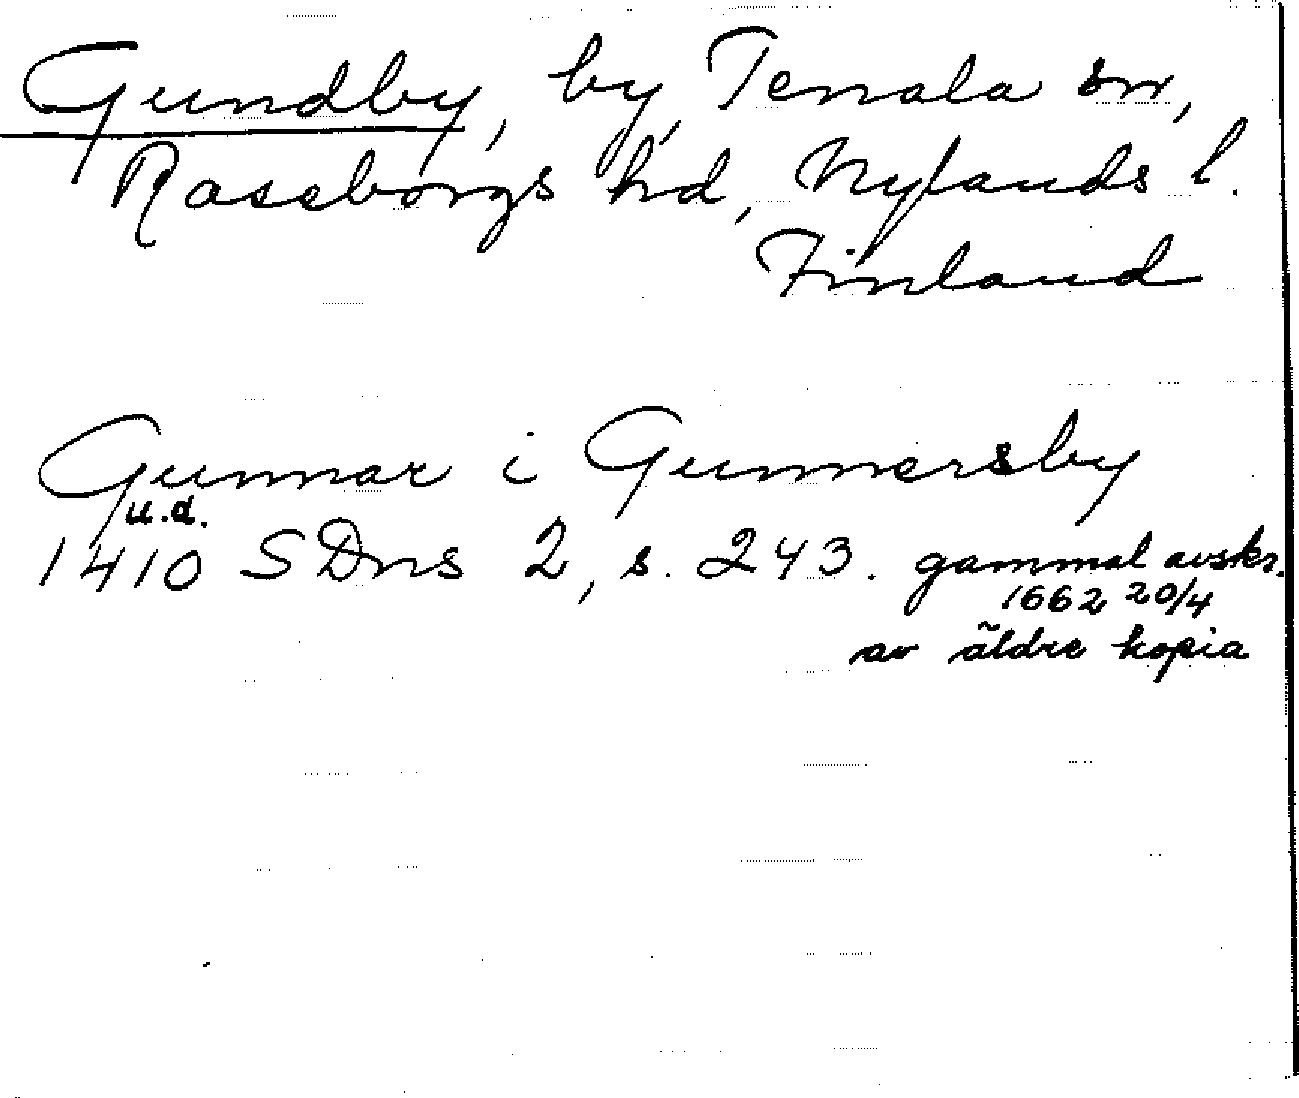 Gundby, by, Tenala sn,
Raseborgs hd, Nylands l.
Finland
Gunnar i Gunnersby
u.d.
1410 SDns 2, s. 243. gammal avskr.
1662 20/4
av äldre kopia